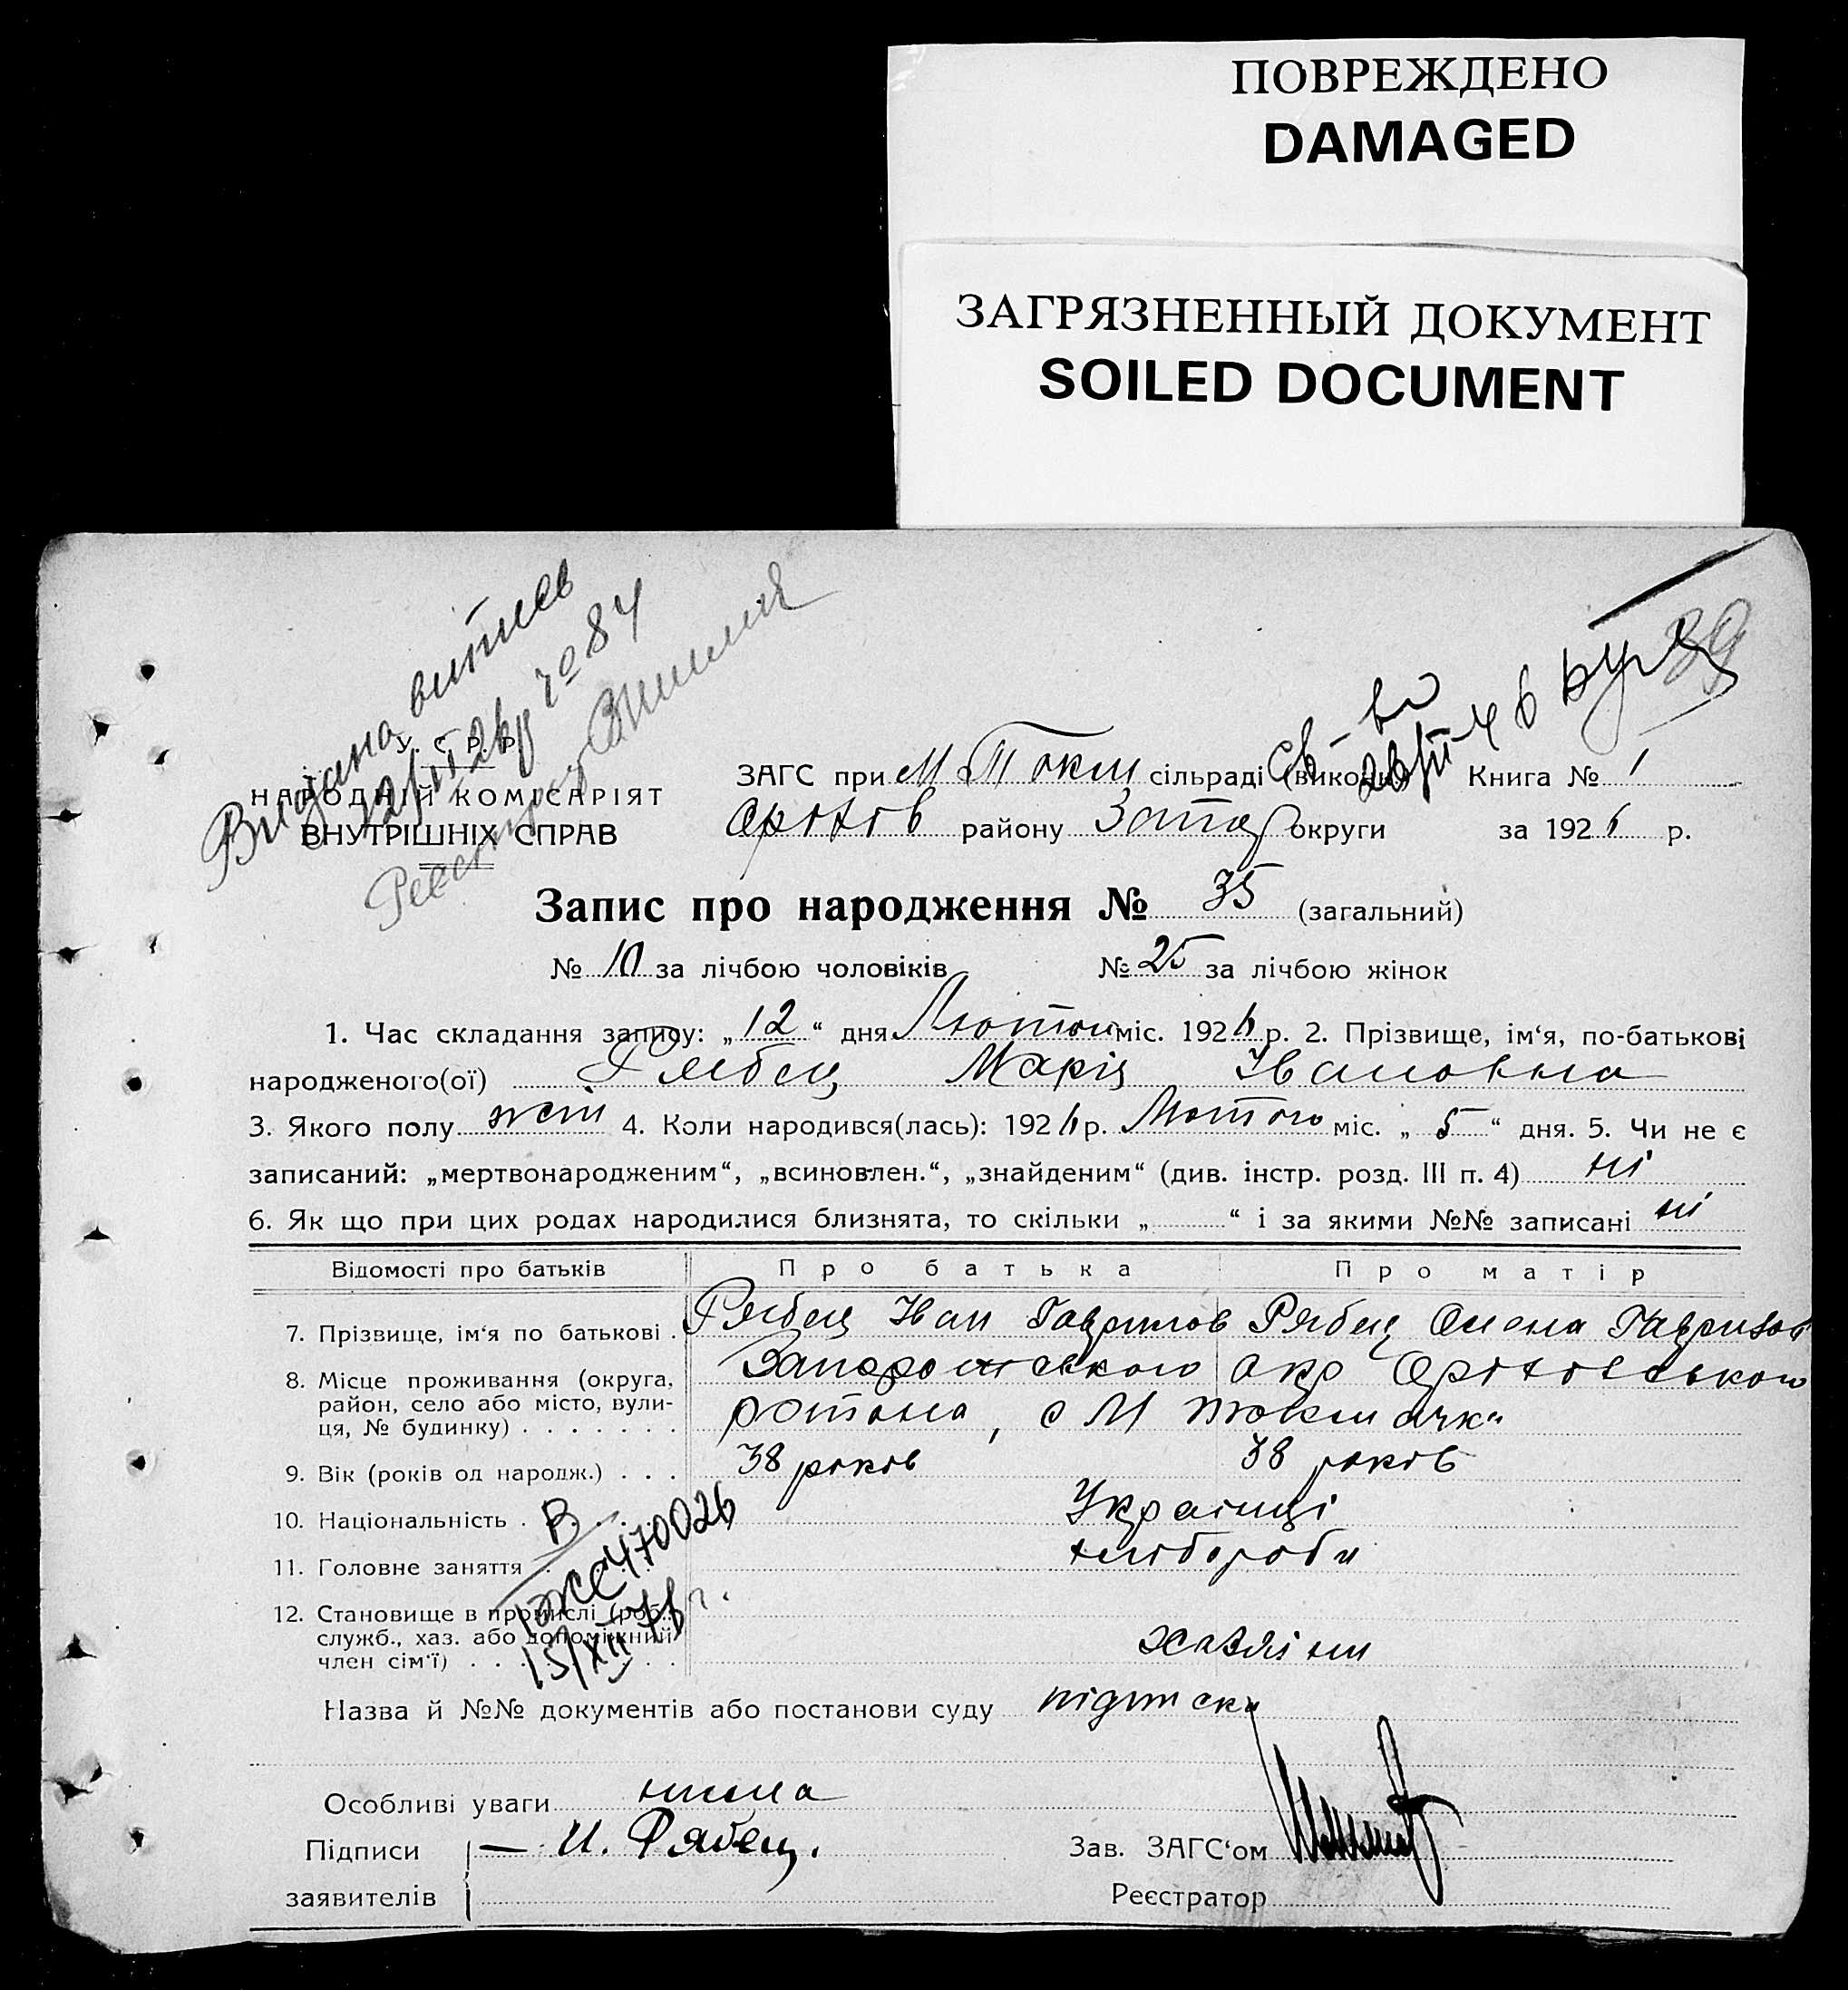 ПОВРЕЖДЕНО
DAMAGED
ЗАГРЯЗНЕННЫЙ ДОКУМЕНТ
SOILED DOCUMENT
Видана витись
№ 84
39
У. С. Р. Р.
НАРОДНІЙ КОМІСАРІЯТ
ВНУТРІШНІХ СПРАВ
ЗАГС при М Токм сільраді (виконк) Книга № 1
Оріхів району Запор округи за 1926 р.
Запис про народження № 35 (загальний)
№ 10 за лічбою чоловіків № 25 за лічбою жінок
1. Час складання запису: „12“ дня Лютого міс. 1926 р. 2. Прізвище, ім‘я, по-батькові
народженого(ої) Рябец Марія Івановна
3. Якого полу жін 4. Коли народився(лась): 1926 р. Лютого міс. „5“ дня. 5. Чи не є
записаний: „мертвонародженим“, „всиновлен.“, „знайденим“ (див. інстр. розд. III п. 4) ні
6. Як що при цих родах народилися близнята, то скільки „ “ і за якими №№ записані ні
Відомості про батьків Про батька Про матір
7. Прізвище, ім‘я по батькові . Рябец Іван Гаврилов Рябец Олена Гаврилов
8. Місце проживання (округа, Запорожського окр Оріховського
район, село або місто, вули-
ця, № будинку) . . . . . . . району, с М Токмачк
9. Вік (років од народж.) . . . 38 років 38 років
10. Національність . . . . . Українці
11. Головне заняття . хлібороби
12. Становище в промислі (роб.,
служб., хаз. або допоміжний
член сім‘ї) . . . . . . . хазяіни
В
ІЖС 470026
15/XII
Назва й №№ документів або постанови суду підписка
Особливі уваги нима
Підписи — И. Рябец.
заявителів
Зав. ЗАГС‘ом
Реєстратор